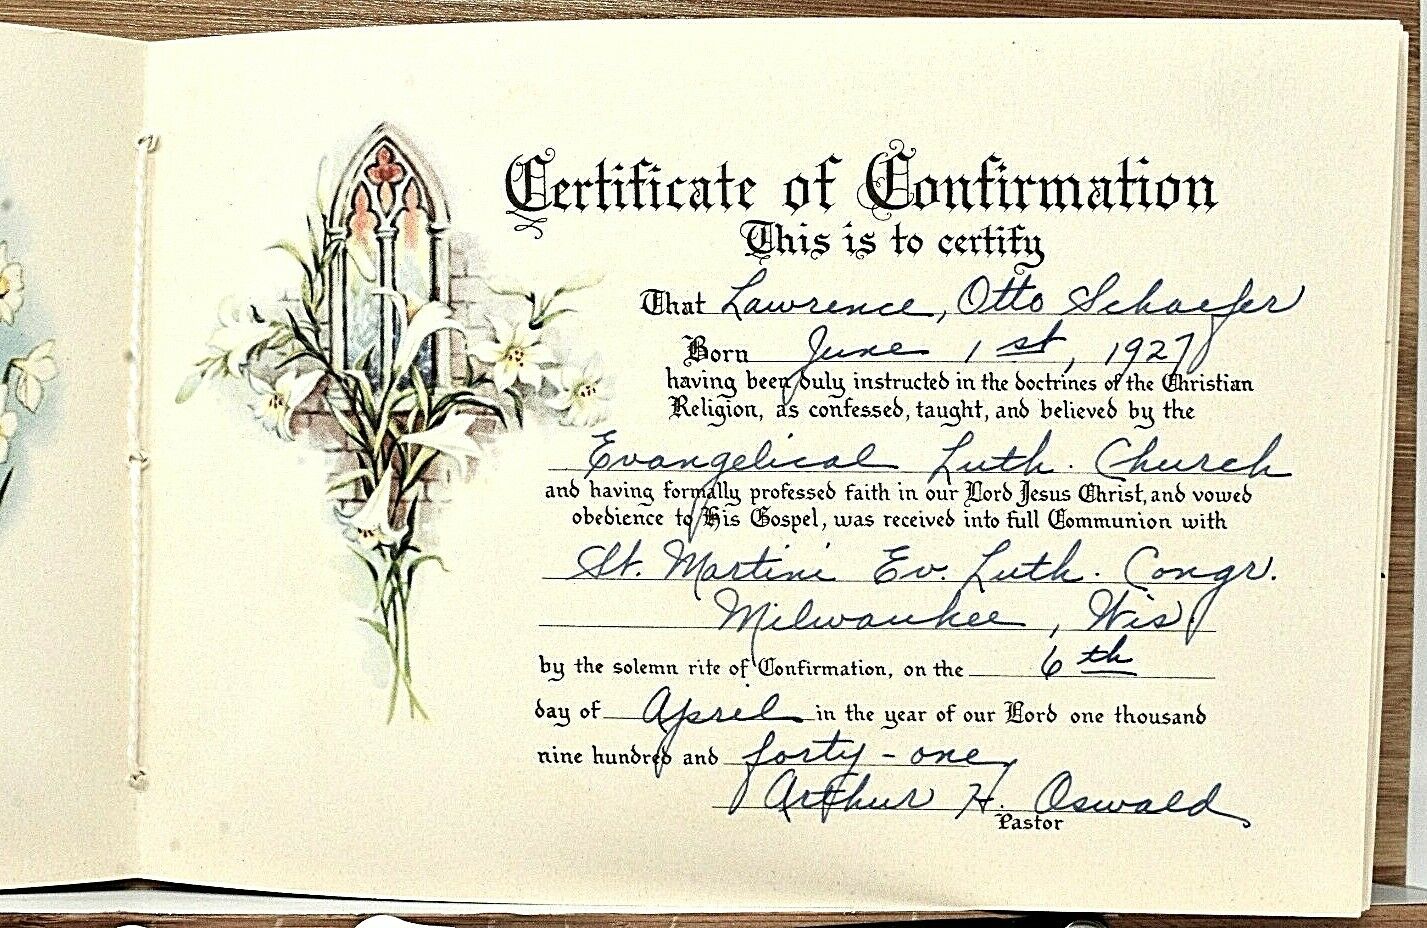 Certificate of Confirmation
This is to certify
That Lawrence, Otto Schaefer
Born June 1st, 1927
having been duly instructed in the doctrines of the Christian
Religion, as confessed, taught, and believed by the
Evangelical Luth. Church
and having formally professed faith in our Lord Jesus Christ, and vowed
obedience to His Gospel, was received into full Communion with
St. Martini Ev. Luth. Congr.
Milwaukee, Wis
by the solemn rite of Confirmation, on the 6th
day of April in the year of our Lord one thousand
nine hundred and forty-one,
Arthur H. Oswald
Pastor